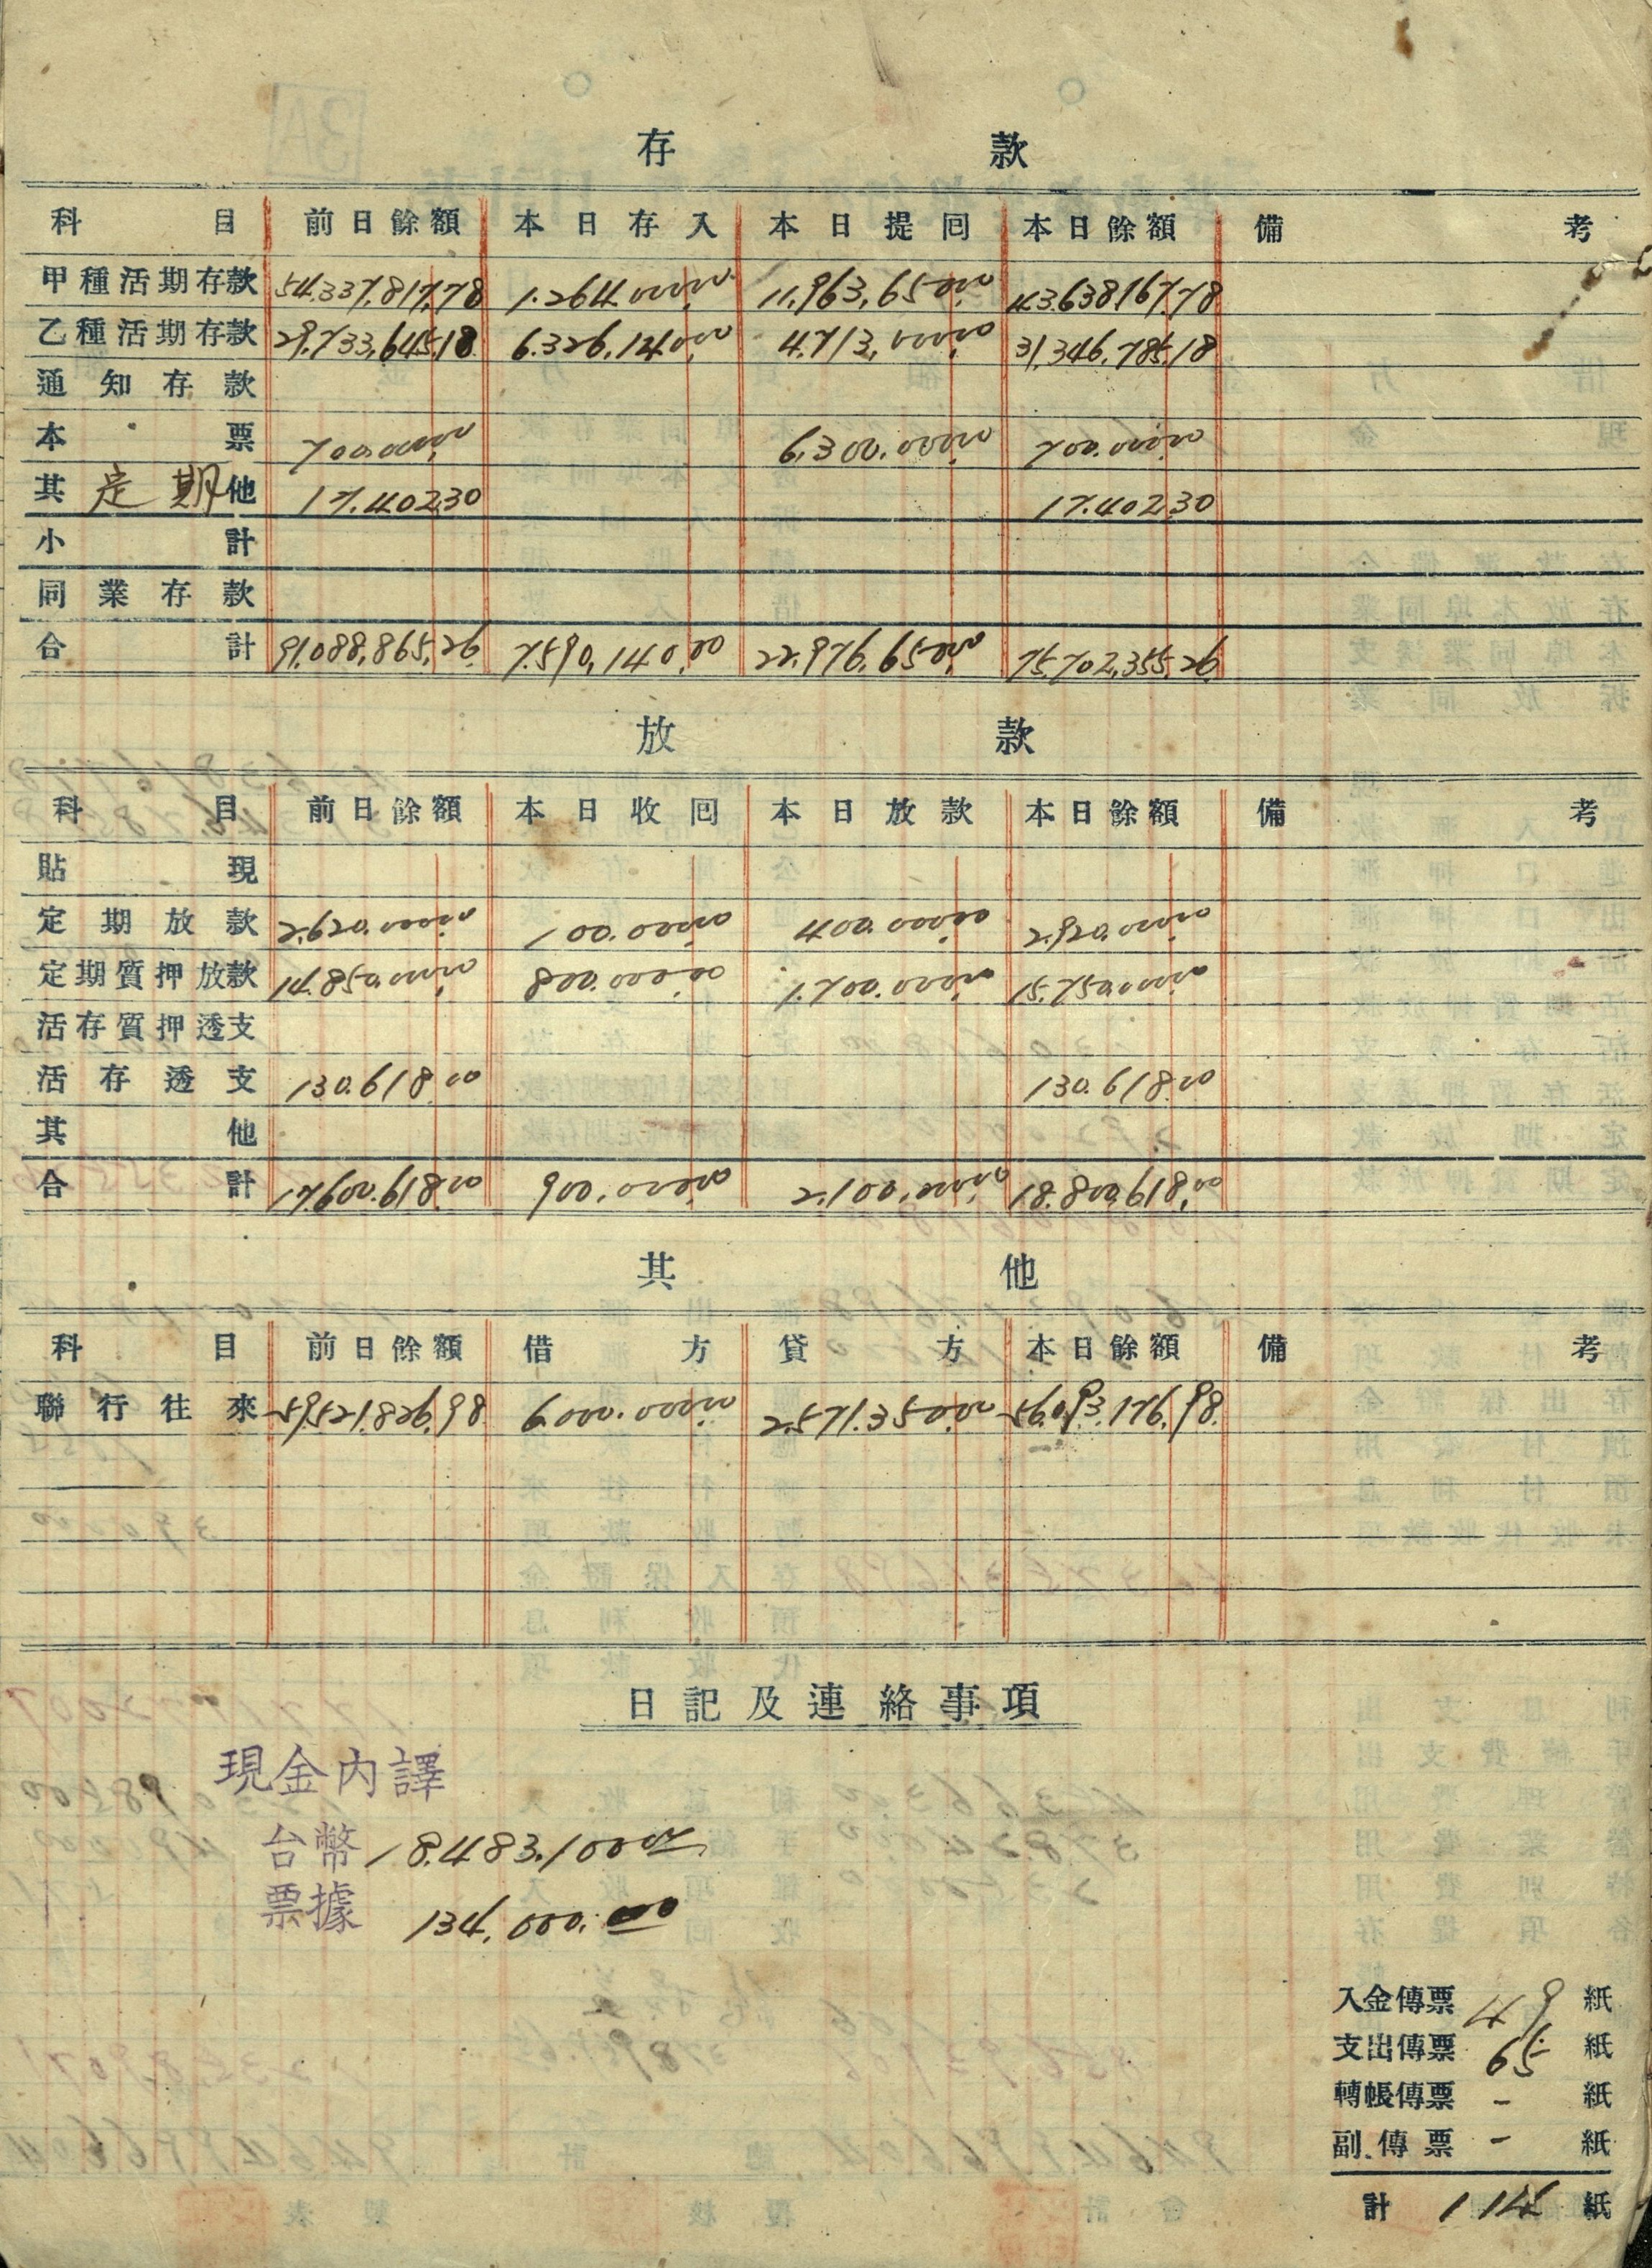 存款
科目 前日餘額 本日存入 本日提囘 本日餘額 備考
甲種活期存款 54.337.817.78 1.264.000.00 11.963.650.00 43.638.167.78
乙種活期存款 29.733.645.18 6.326.140.00 4.713.000.00 31.346.785.18
通知存款
本票 7.000.000.00 6.300.000.00 700.000.00
其定期他 17.402.30 17.402.30
小計
同業存款
合計 91.088.865.26 7.590.140.00 22.976.650.00 75.702.355.26
放款
科目 前日餘額 本日收囘 本日放款 本日餘額 備考
貼現
定期放款 2.620.000.00 100.000.00 400.000.00 2.920.000.00
定期質押放款 14.850.000.00 800.000.00 1.700.000.00 15.750.000.00
活存質押透支
活存透支 130.618.00 130.618.00
其他
合計 17.600.618.00 900.000.00 2.100.000.00 18.800.618.00
其他
科目 前日餘額 借方 貸方 本日餘額 備考
聯行往來 -59.521.826.98 6.000.000.00 2.571.350.00 -56.093.176.98
日記及連絡事項
現金內譯
台幣 18.483.100.00
票據 134.000.00
入金傳票 49 紙
支出傳票 65 紙
轉帳傳票 - 紙
副傳票 - 紙
計 114 紙